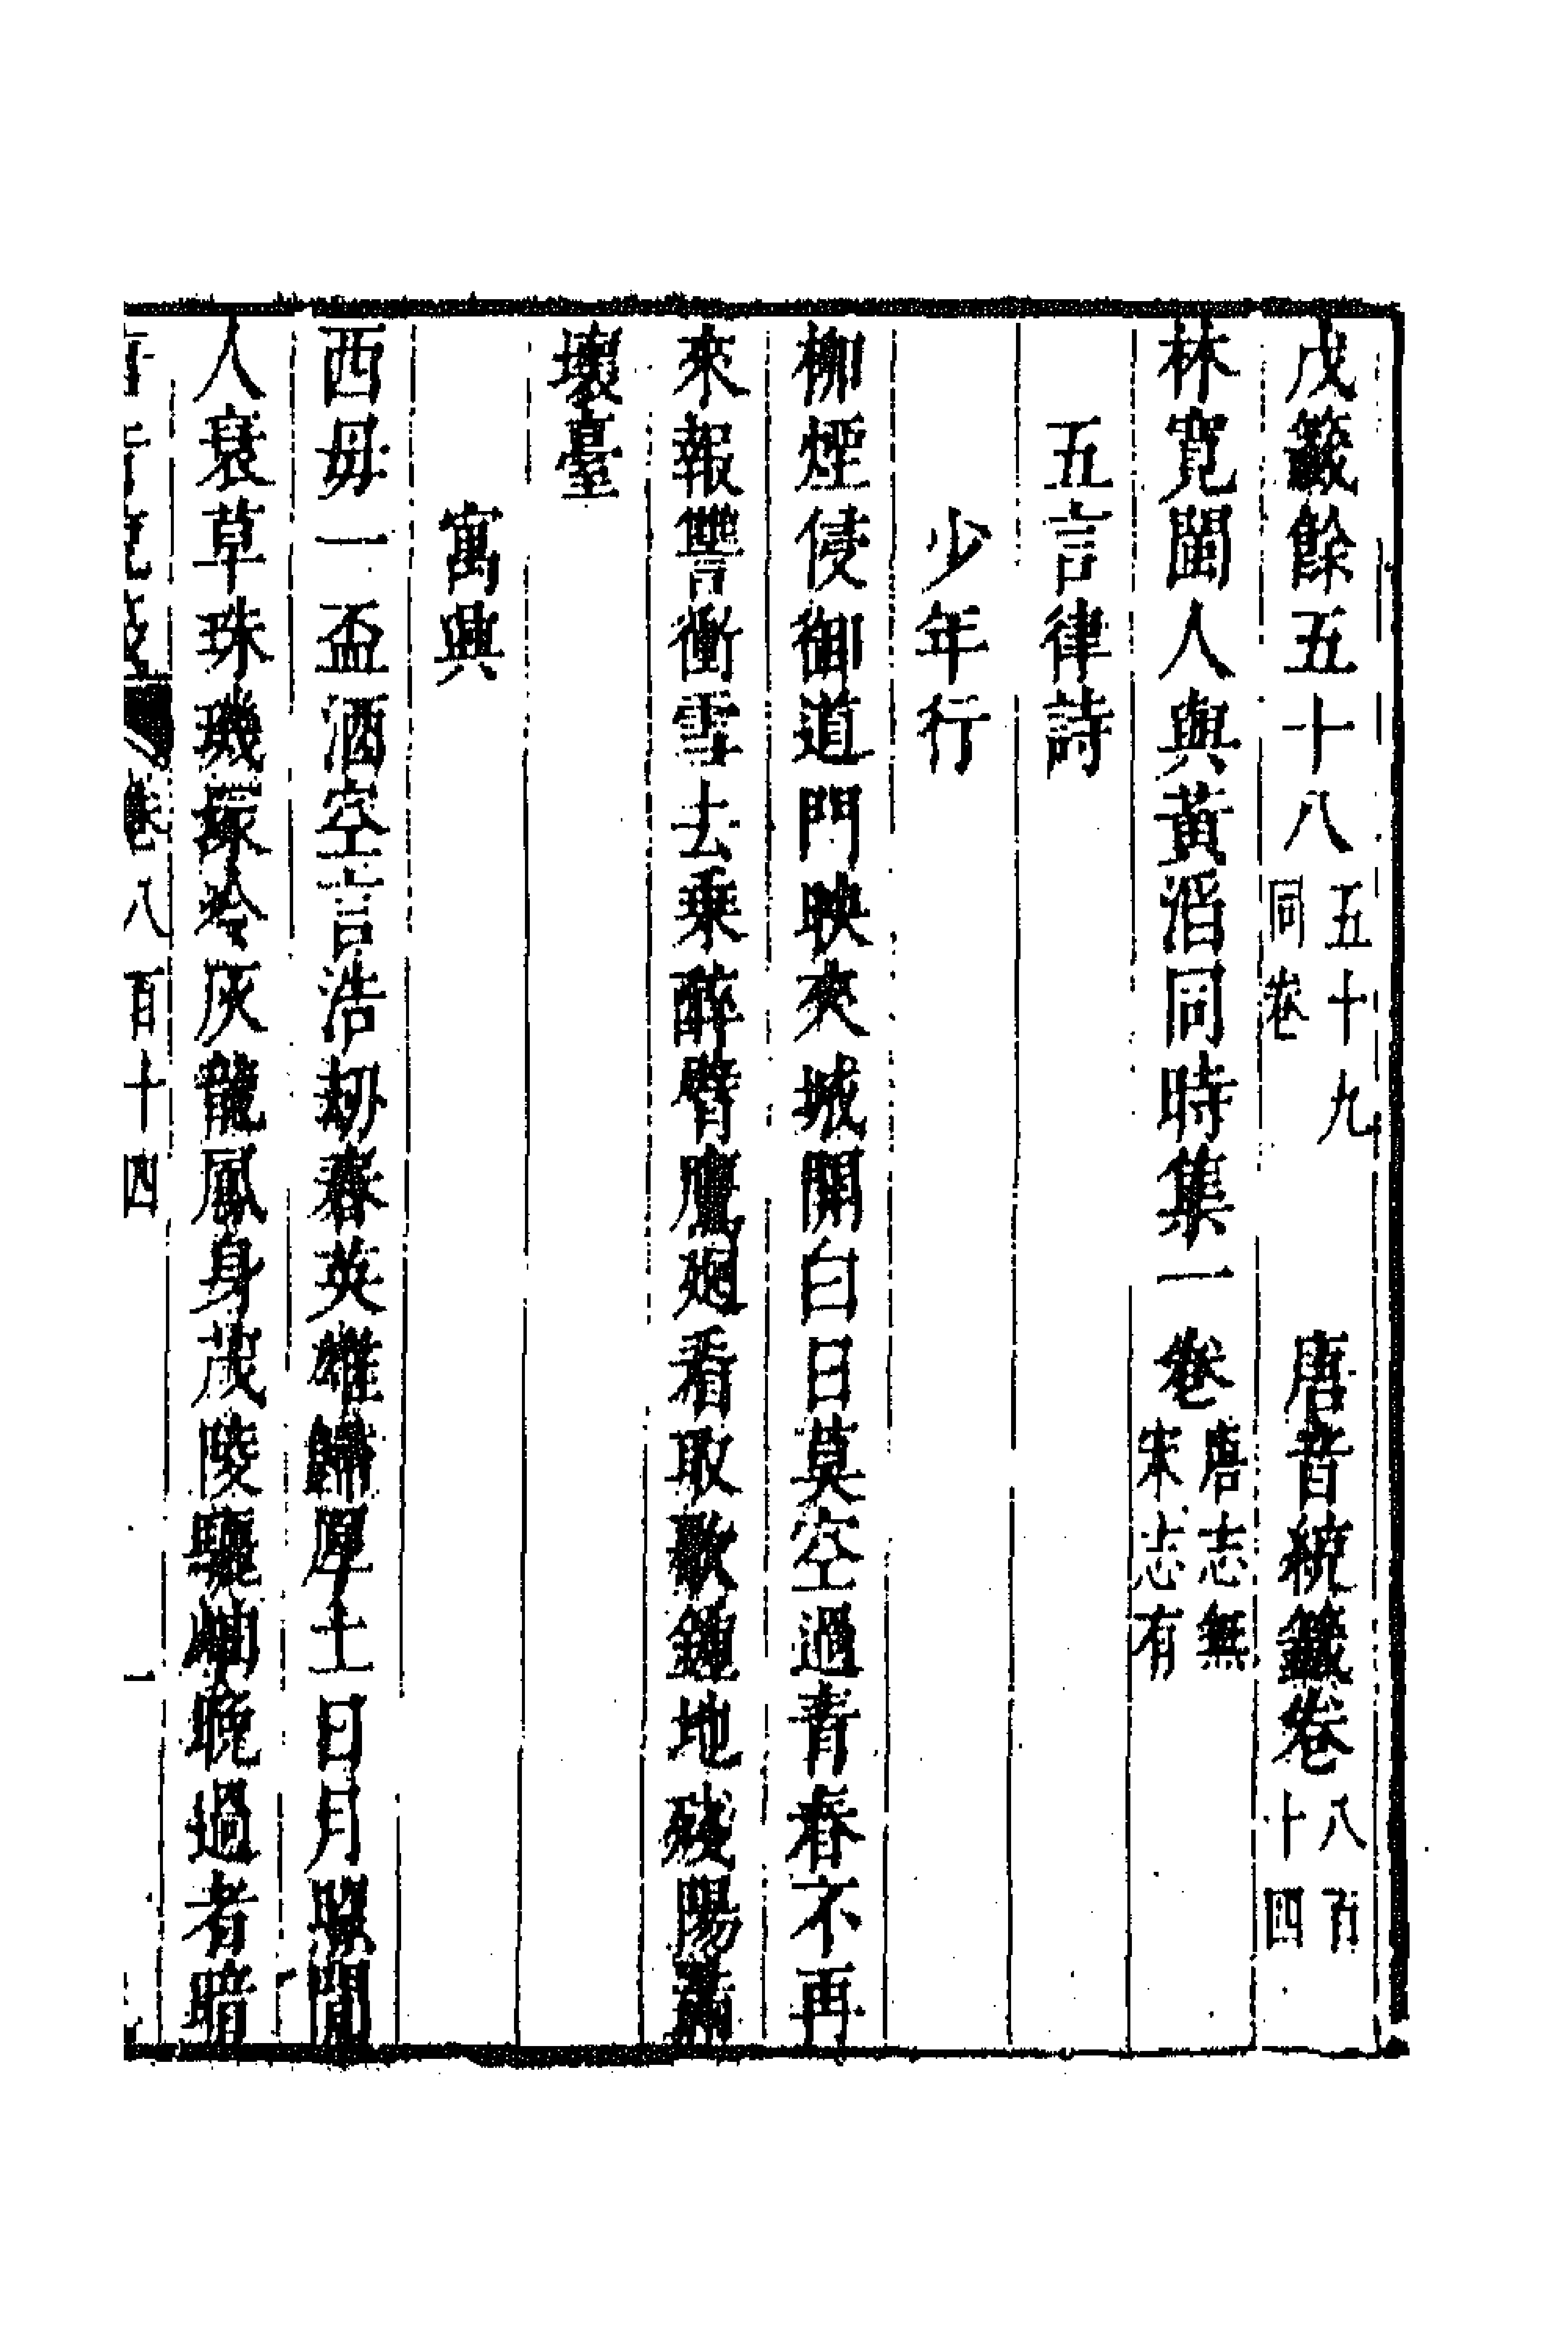 戊籤餘五十八五十九同卷　唐音統籤卷八百十四
林寬閩人與黃滔同時集一卷唐志無宋志有
五言律詩
少年行
柳煙侵御道門映夾城開白日莫空過青春不再
來報讐衝雪去乗醉臂鷹廻看取歌鍾地殘陽滿
壞臺
寓興
西毋一盃酒空言浩刼春英雄歸厚土日月照閒
人衰草珠璣冷灰龍鳳身茂陵驪岫晚過者暗
卷八百十四
一